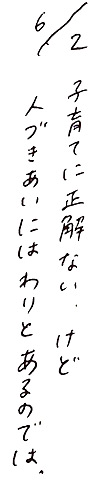 6/2
子育てに正解ない.けど
人づきあいにはわりとあるのでは.